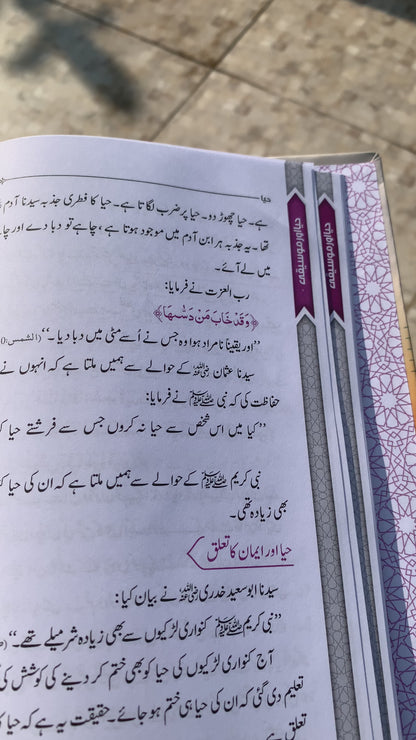 حیا
ہے۔ حیا چھوڑ دو۔ حیا پر ضرب لگاتا ہے۔ حیا کا فطری جذبہ سیدنا آدم
تھا ۔ یہ جذبہ ہر ابن آدم میں موجود ہوتا ہے، چاہے تو دبا دے اور
میں لے آئے۔
رب العزت نے فرمایا:
﴿وَقَدْ خَابَ مَنْ دَسّٰىهَا﴾
’’اور یقیناً نامراد ہوا وہ جس نے اُسے مٹی میں دبا دیا۔‘‘ (الشمس:
سیدنا عثمان رضی اللہ عنہ کے حوالے سے ہمیں ملتا ہے کہ انہوں نے
حفاظت کی کہ نبی صلی اللہ علیہ وسلم نے فرمایا:
’’کیا میں اس شخص سے حیا نہ کروں جس سے فرشتے حیا
نبی کریم صلی اللہ علیہ وسلم کے حوالے سے ہمیں ملتا ہے کہ ان کی حیا
بھی زیادہ تھی۔
حیا اور ایمان کا تعلق
سیدنا ابوسعید خدری رضی اللہ عنہ نے بیان کیا:
’’نبی کریم صلی اللہ علیہ وسلم کنواری لڑکیوں سے بھی زیادہ شرمیلے تھے۔‘‘
آج کنواری لڑکیوں کی حیا کو بھی ختم کر دینے کی کوشش کی
تعلیم دی گئی کہ ان کی حیا ہی ختم ہو جائے۔ حقیقت یہ ہے کہ حیا
تعلق ہے